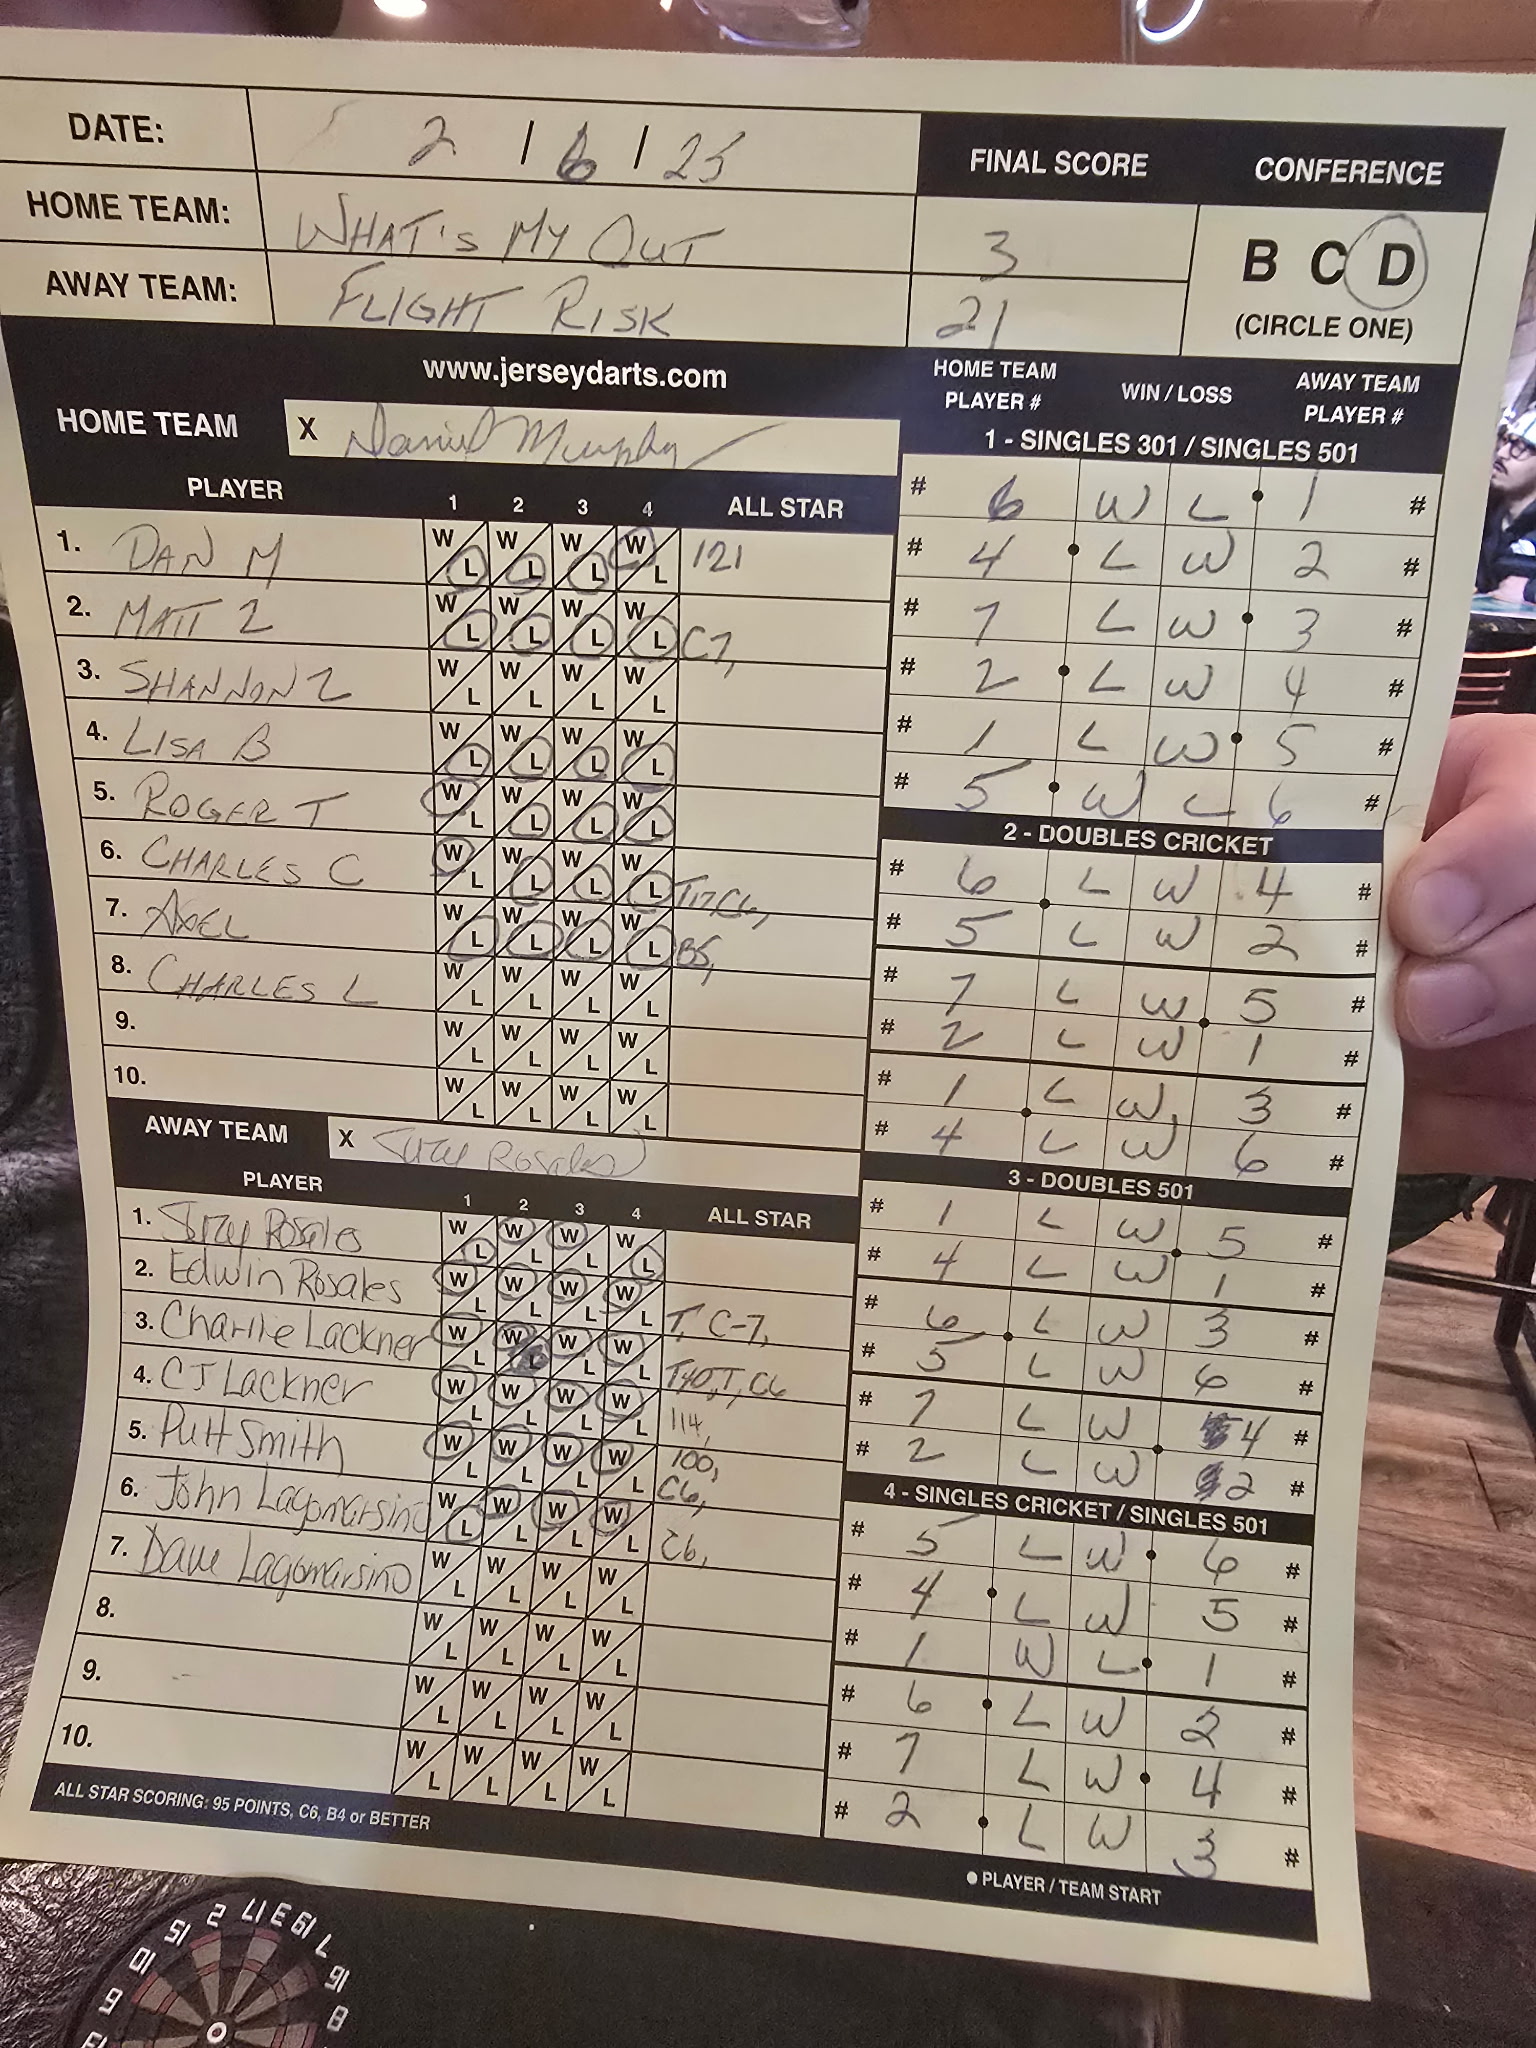 DATE: 2 / 6 / 25
FINAL SCORE CONFERENCE
HOME TEAM: WHAT'S MY OUT 3
B C D
AWAY TEAM: FLIGHT RISK 21
(CIRCLE ONE)
www.jerseydarts.com
HOME TEAM PLAYER # WIN / LOSS AWAY TEAM PLAYER #
HOME TEAM X Daniel Murphy
PLAYER 1 2 3 4 ALL STAR
1. DAN M W L W L W L W L 121
2. MATT Z W L W L W L W L C7,
3. SHANNON Z W L W L W L W L
4. LISA B W L W L W L W L
5. ROGER T W L W L W L W L
6. CHARLES C W L W L W L W L T17, C6,
7. AXEL W L W L W L W L B5,
8. CHARLES L W L W L W L W L
9. W L W L W L W L
10. W L W L W L W L
AWAY TEAM X Suzy Rosales
PLAYER 1 2 3 4 ALL STAR
1. Suzy Rosales W L W L W L W L
2. Edwin Rosales W L W L W L W L T, C-7,
3. Charlie Lackner W L W L W L W L T40, T, C6
4. CJ Lackner W L W L W L W L 114,
5. Putt Smith W L W L W L W L 100, C6,
6. John Lagomarsino W L W L W L W L C6,
7. Dave Lagomarsino W L W L W L W L
8. W L W L W L W L
9. W L W L W L W L
10. W L W L W L W L
ALL STAR SCORING: 95 POINTS, C6, B4 or BETTER
1 - SINGLES 301 / SINGLES 501
# 6 W L 1 #
# 4 L W 2 #
# 7 L W 3 #
# 2 L W 4 #
# 1 L W 5 #
# 5 W L 6 #
2 - DOUBLES CRICKET
# 6 L W 4 #
# 5 L W 2 #
# 7 L W 5 #
# 2 L W 1 #
# 1 L W 3 #
# 4 L W 6 #
3 - DOUBLES 501
# 1 L W 5 #
# 4 L W 1 #
# 6 L W 3 #
# 5 L W 6 #
# 7 L W 4 #
# 2 L W 2 #
4 - SINGLES CRICKET / SINGLES 501
# 5 L W 6 #
# 4 L W 5 #
# 1 W L 1 #
# 6 L W 2 #
# 7 L W 4 #
# 2 L W 3 #
● PLAYER / TEAM START